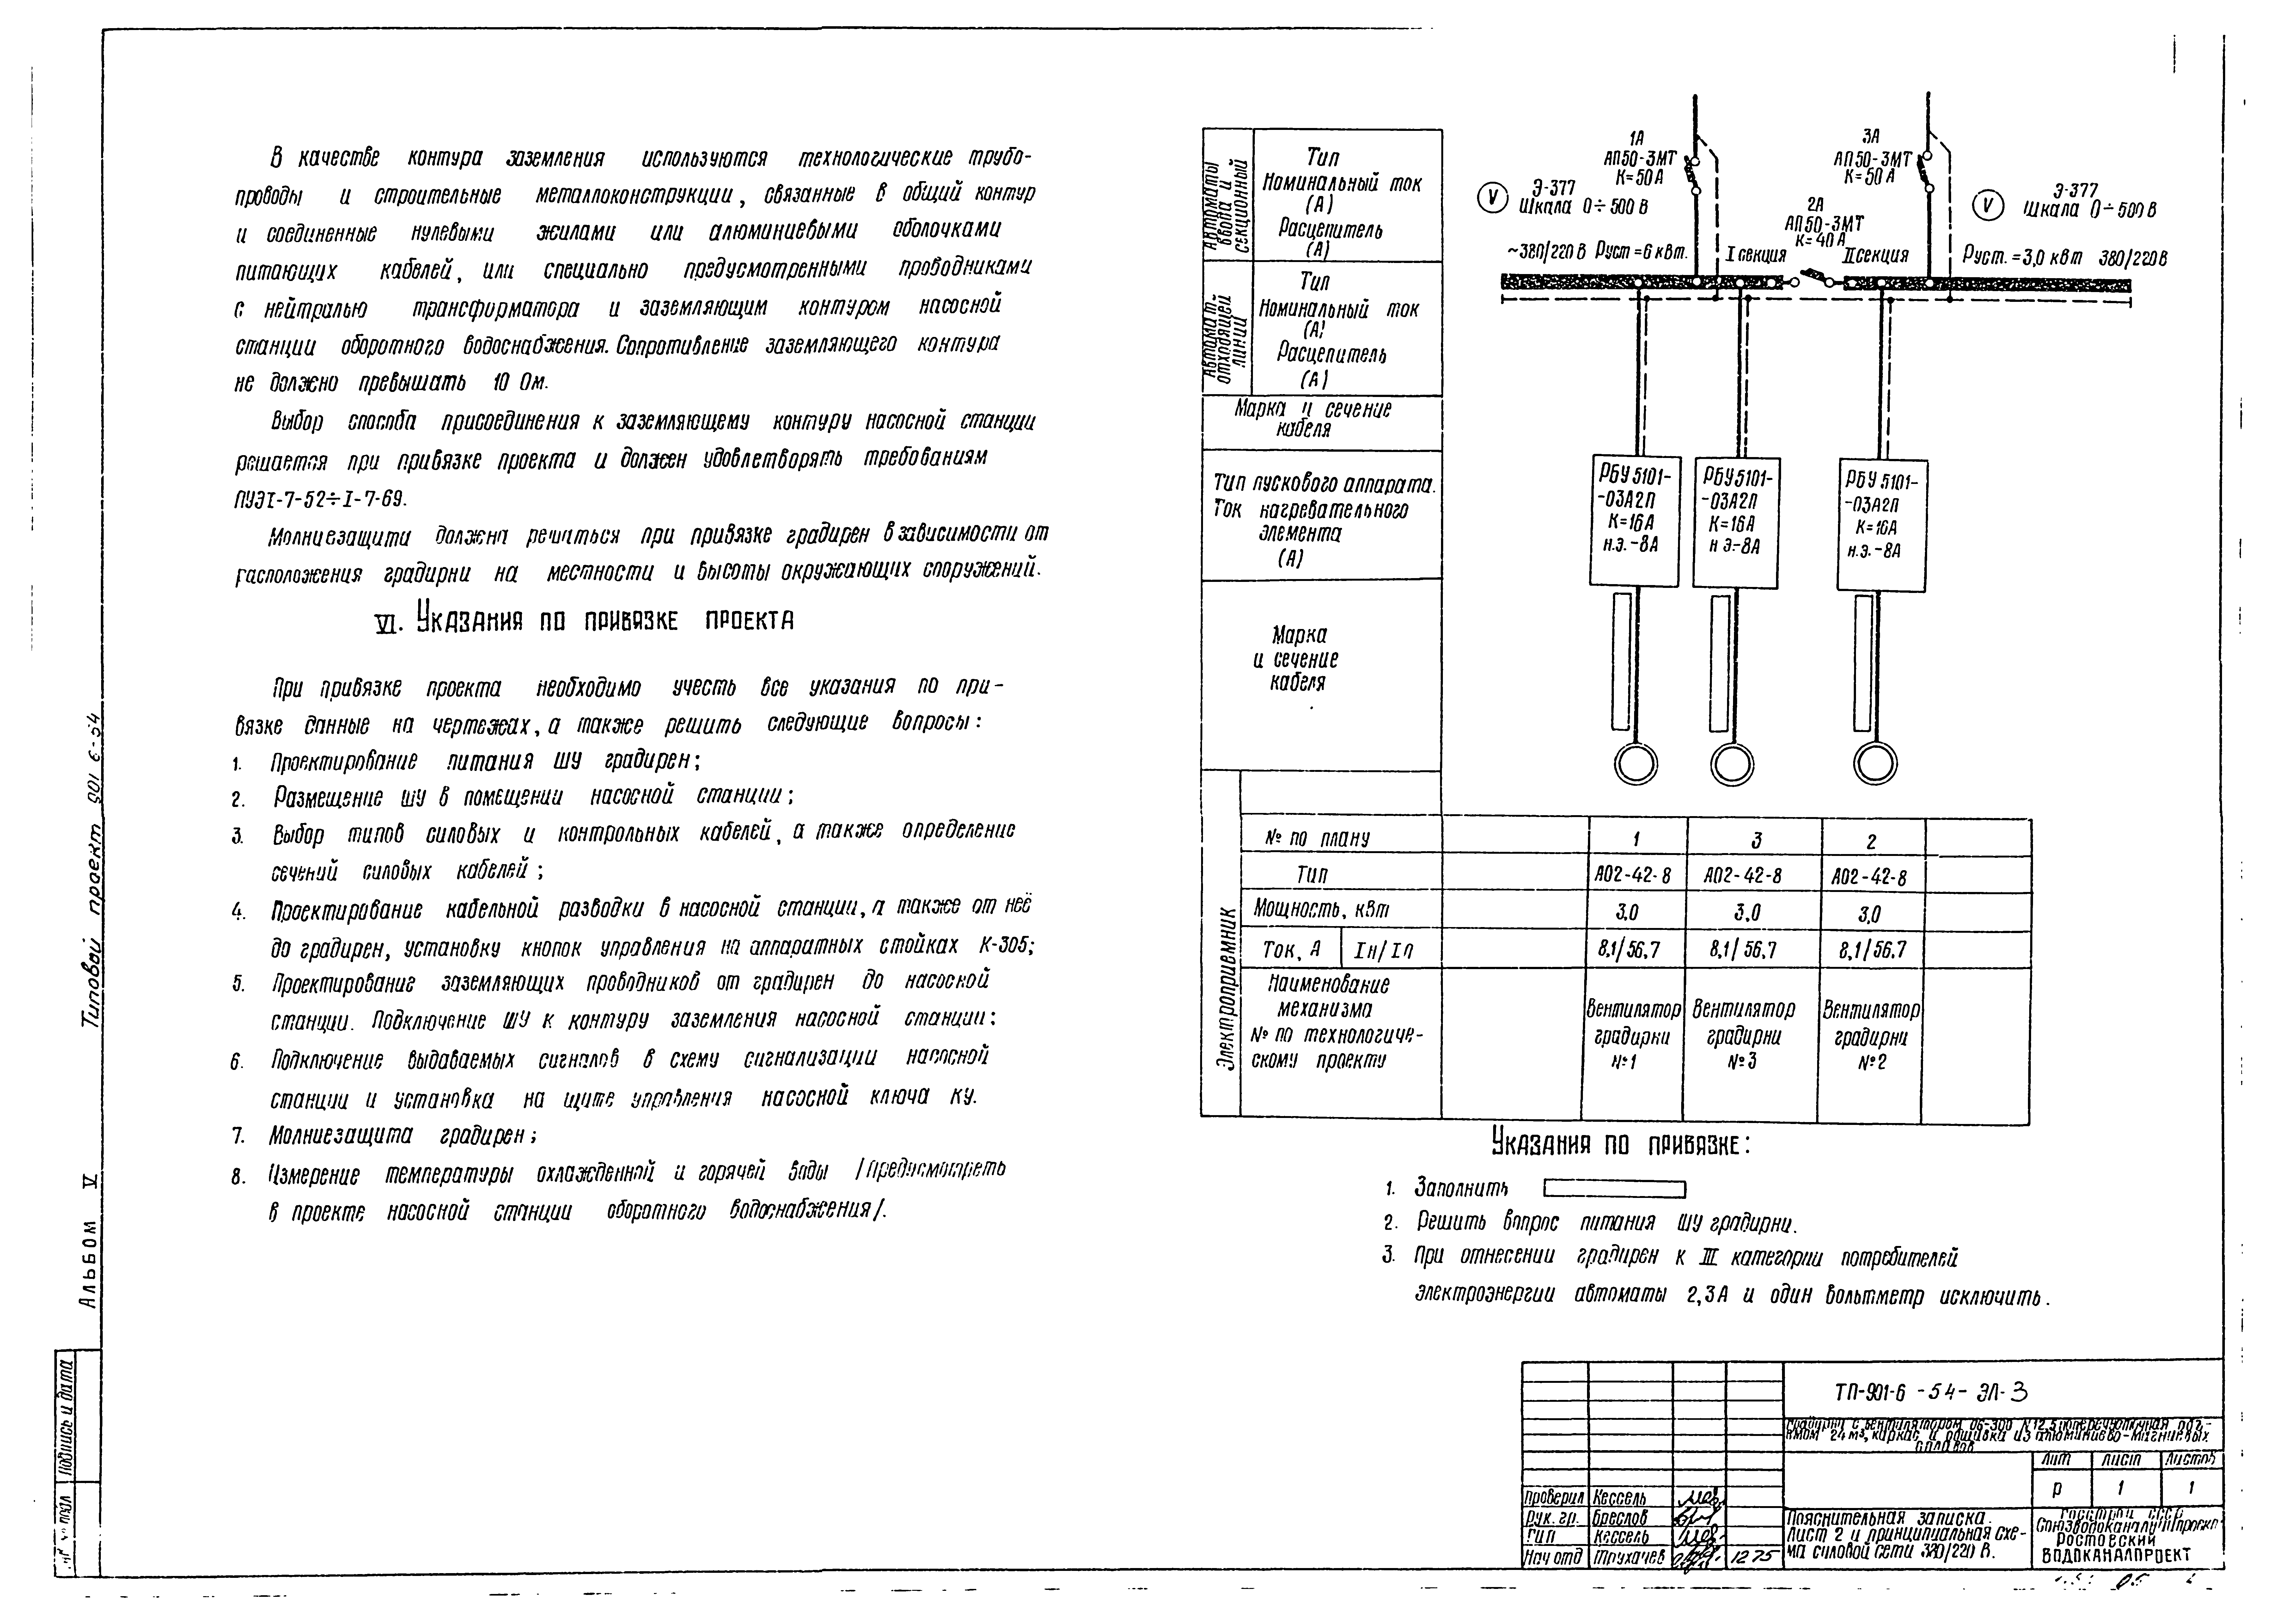 В качестве контура заземления используются технологические трубо-
проводы и строительные металлоконструкции, связанные в общий контур
и соединенные нулевыми жилами или алюминиевыми оболочками
питающих кабелей, или специально предусмотренными проводниками
с нейтралью трансформатора и заземляющим контуром насосной
станции оборотного водоснабжения. Сопротивление заземляющего контура
не должно превышать 10 Ом.
Выбор способа присоединения к заземляющему контуру насосной станции
решается при привязке проекта и должен удовлетворять требованиям
ПУЭI-7-52÷I-7-69.
Молниезащита должна решаться при привязке градирен в зависимости от
расположения градирни на местности и высоты окружающих сооружений.
VI. Указания по привязке проекта
При привязке проекта необходимо учесть все указания по при-
вязке данные на чертежах, а также решить следующие вопросы:
1. Проектирование питания ШУ градирен;
2. Размещение ШУ в помещении насосной станции;
3. Выбор типов силовых и контрольных кабелей, а также определение
сечений силовых кабелей;
4. Проектирование кабельной разводки в насосной станции, а также от неё
до градирен, установку кнопок управления на аппаратных стойках К-305;
5. Проектирование заземляющих проводников от градирен до насосной
станции. Подключение ШУ к контуру заземления насосной станции;
6. Подключение выдаваемых сигналов в схему сигнализации насосной
станции и установка на щите управления насосной ключа КУ.
7. Молниезащита градирен;
8. Измерение температуры охлажденной и горячей воды /предусмотреть
в проекте насосной станции оборотного водоснабжения/.
Типовой проект 901 6-54
Альбом V
Подпись и дата
Автоматы ввода и секционный
Тип
Номинальный ток
(А)
Расцепитель
(А)
Автомат отходящей линии
Тип
Номинальный ток
(А)
Расцепитель
(А)
Марка и сечение
кабеля
Тип пускового аппарата.
Ток нагревательного
элемента
(А)
Марка
и сечение
кабеля
1А
АП50-3МТ
К=50А
3А
АП50-3МТ
К=50А
V
Э-377
Шкала 0÷500 В
2А
АП50-3МТ
К=40А
V
Э-377
Шкала 0÷500 В
~380/220 В Руст=6 квт. I секция II секция Руст.=3,0 квт 380/220 В
РБУ 5101-
-03А2П
К=16А
н.э.-8А
РБУ 5101-
-03А2П
К=16А
н э.-8А
РБУ 5101-
-03А2П
К=16А
н.э.-8А
Электроприемник
№ по плану 1 3 2
Тип АО2-42-8 АО2-42-8 АО2-42-8
Мощность, квт 3,0 3,0 3,0
Ток, А Iн/Iп 8,1/56,7 8,1/56,7 8,1/56,7
Наименование
механизма
№ по технологиче-
скому проекту
Вентилятор
градирни
№1
Вентилятор
градирни
№3
Вентилятор
градирни
№2
Указания по привязке:
1. Заполнить
2. Решить вопрос питания ШУ градирни.
3. При отнесении градирен к III категории потребителей
электроэнергии автоматы 2,3А и один вольтметр исключить.
ТП-901-6-54-ЭЛ-3
Градирни с вентилятором 06-300 №12,5 поперечноточная,
24 м³, каркас и обшивка из алюминиево-магниевых
сплавов
Лит Лист Листов
Р 1 1
Проверил Кессель
Рук. гр. Бреслов
ГИП Кессель
Нач отд Трухачев 12 75
Пояснительная записка.
Лист 2 и принципиальная схе-
ма силовой сети 380/220 В.
Госстрой СССР
Союзводоканалниипроект
Ростовский
Водоканалпроект